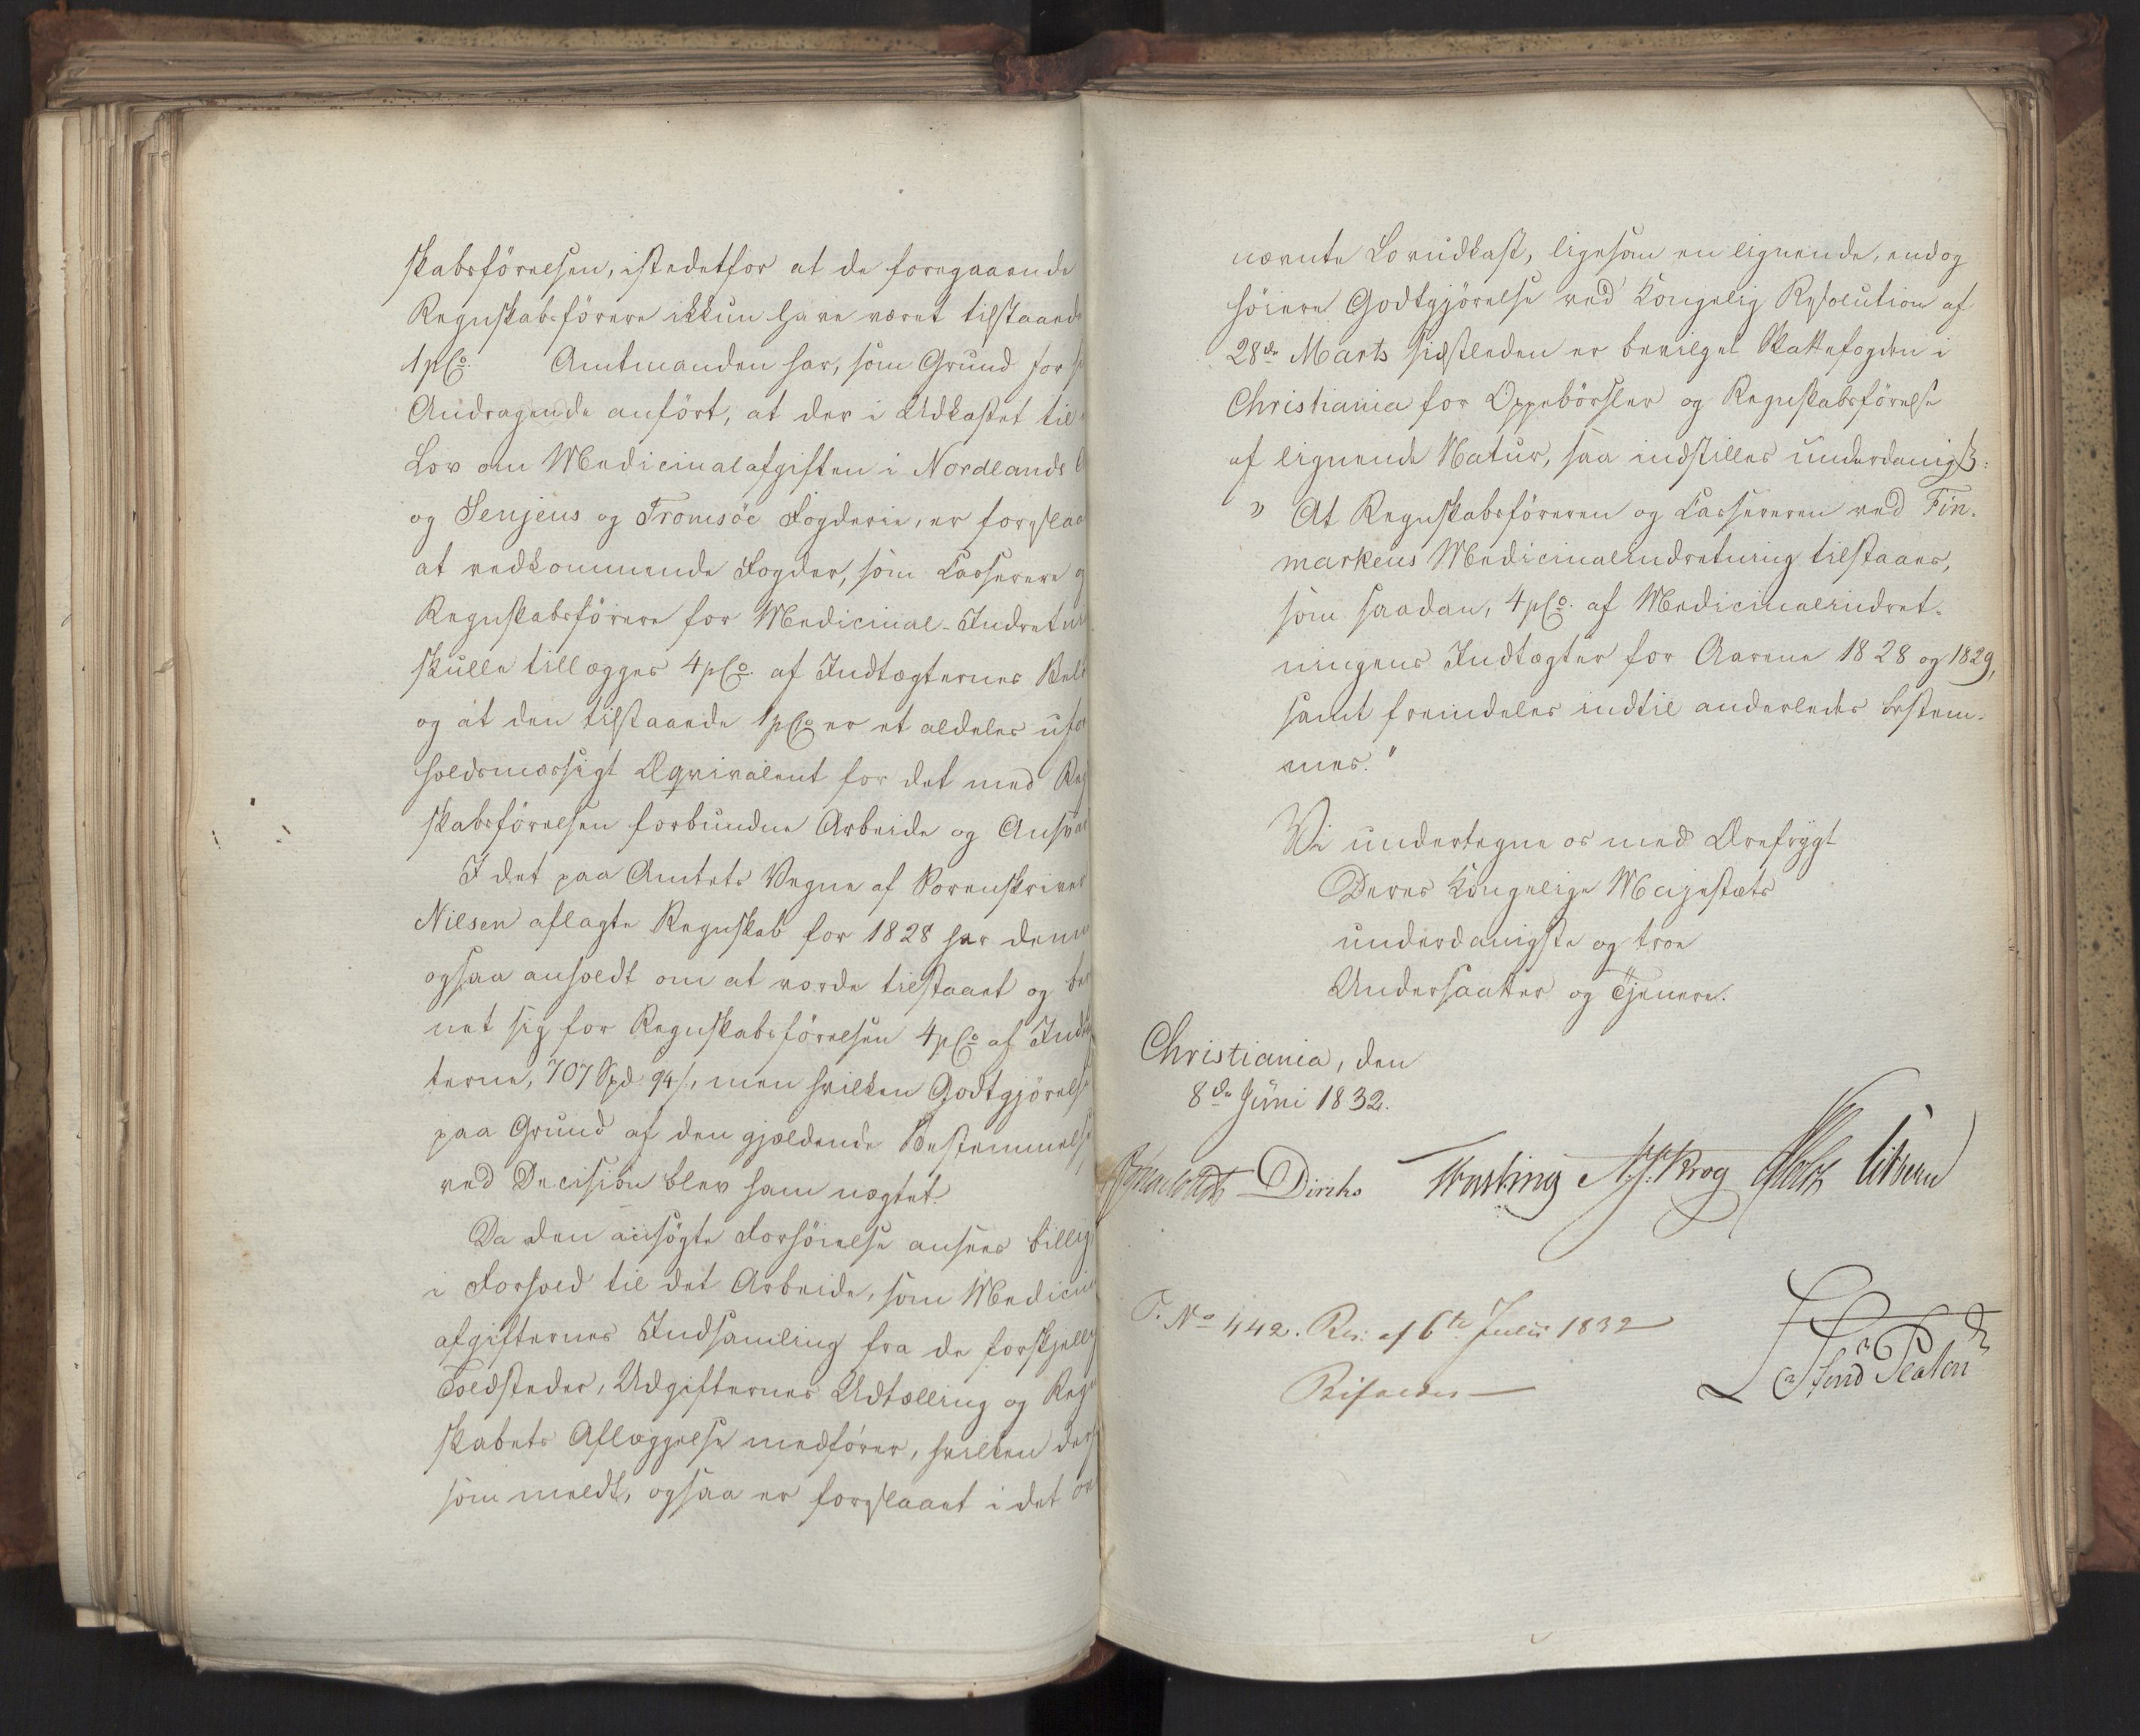 skabsförelsen, istedetfor at de foregaaende
Regnskabsförere ikkun have været tilstaaede
1 pCo. Amtmanden har, som Grund for
Andragende anfört, at der i Udkastet til
Lov om Medicinalafgiften i Nordlands
og Senjens og Tromsöe Fogderie, er foreslaa
at vedkommende Fogder, som Casserere og
Regnskabsförere for Medicinal-Indretni
skulle tillægges 4 pCo. af Indtægternes Belö
og at den tilstaaede 1 pCo. er et aldeles ufor
holdsmæssigt Æqvivalent for det med Reg
skabsförelsen forbundne Arbeide og Ansvar
I det paa Amtets Vegne af Sorenskriver
Nilsen aflagte Regnskab for 1828 har denne
ogsaa anholdt om at vorde tilstaaet og bereg
net sig for Regnskabsförelsen 4 pCo. af Indtæg
terne, 707 Spd. 94 s, men hvilken Godtgjörelse
paa Grund af den gjældende Bestemmelse
ved Decision blev ham nægtet.
Da den ansögte Forhöielse ansees billig
i Forhold til det Arbeide, som Medicin
afgifternes Indsamling fra de forskjellig
Toldsteder, Udgifternes Udtælling og Regn
skabets Aflæggelse medförer, hvilken der
som meldt, ogsaa er foreslaaet i det ov
nævnte Lovudkast, ligesom en lignende, endog
höiere Godtgjörelse ved Kongelig Resolution af
28de Marts sidstleden er bevilget Skattefogden i
Christiania for Oppebörsler og Regnskabsförelse
af lignende Natur, saa indstilles underdanigst:
" At Regnskabsföreren og Cassereren ved Fin-
markens Medicinalindretning tilstaaes,
som saadan, 4 pCo. af Medicinalindret-
ningens Indtægter for Aarene 1828 og 1829,
samt fremdeles indtil anderledes bestem-
mes."
Vi undertegne os med Ærefrygt
Deres Kongelige Majestæts
underdanigste og troe
Undersaatter og Tjenere.
Christiania, den
8de Juni 1832.
Diriks Fasting Krog Holst Vibe
F. No 442. Res: af 6te Julii 1832
Bifaldes
Platen